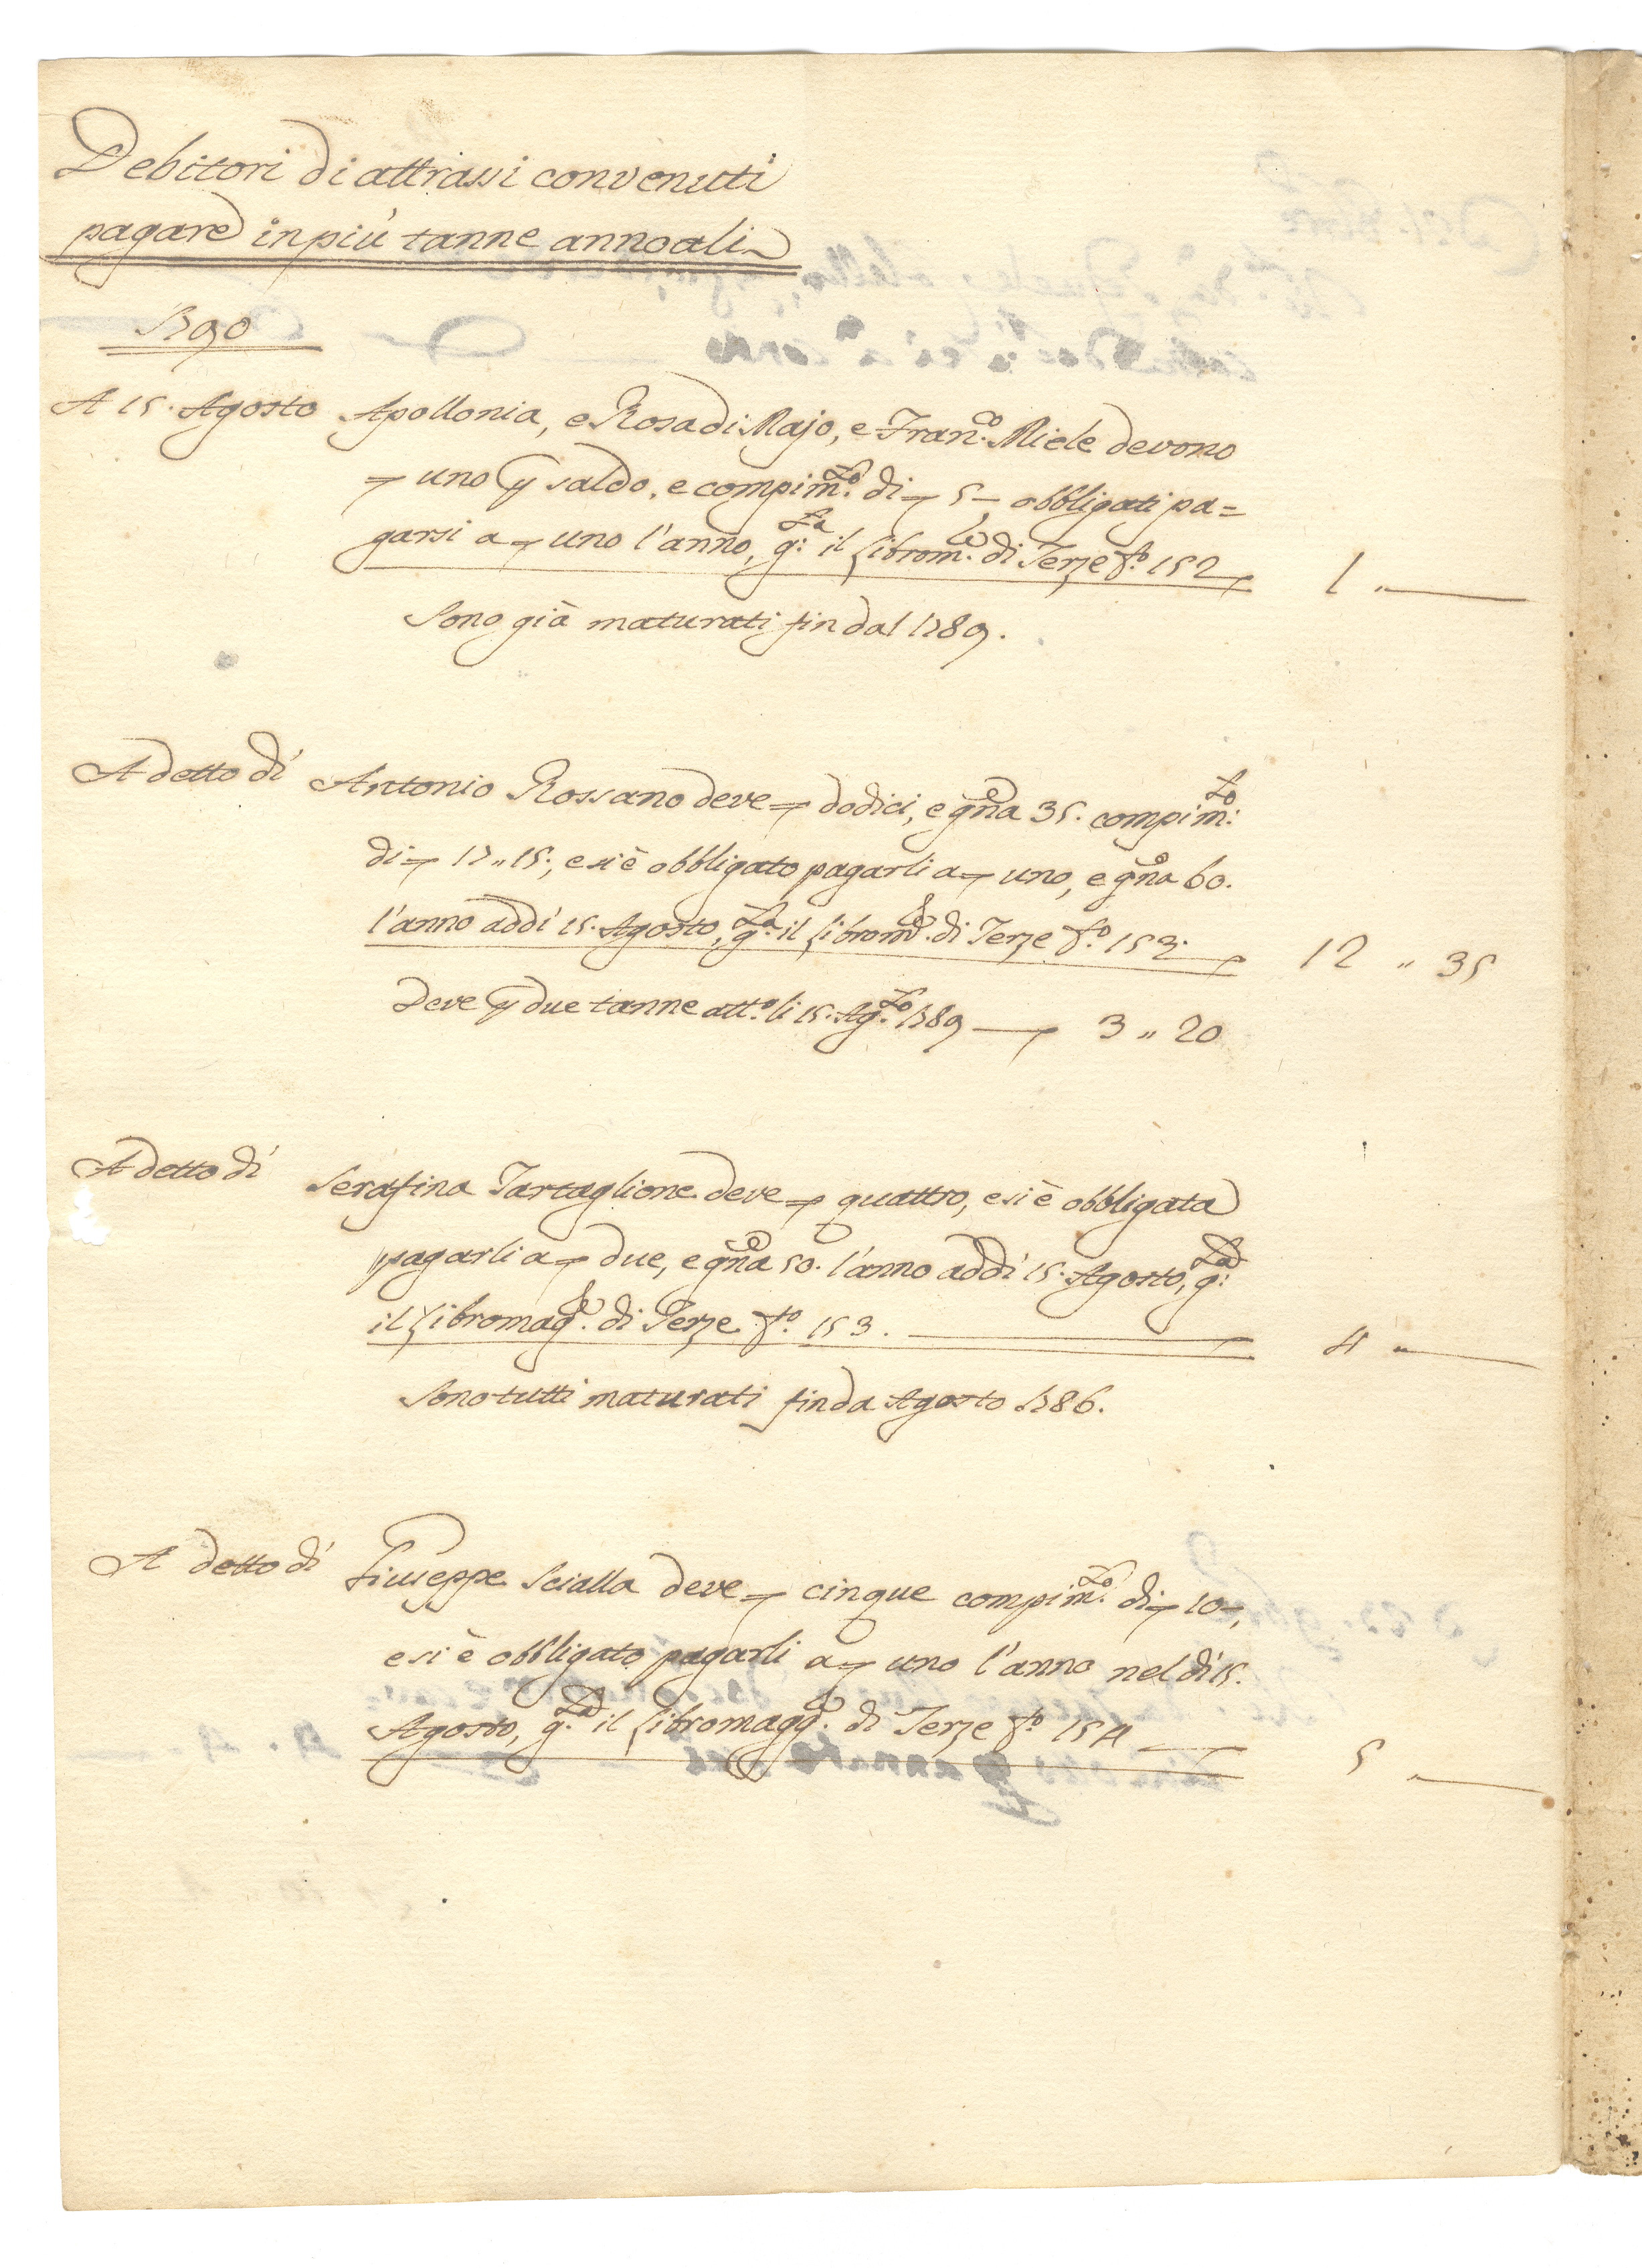 Debitori di attrassi convenuti
pagare in più tanne annoali
1790
A 15. Agosto Apollonia, e Rosa di Majo, e Fran.co Miele devono
uno p saldo, e compim.to di 5 – obbligati pa=
garsi a uno l'anno, g.ta il Librom.e di Terze fo. 152 1 „ —
Sono già maturati fin dal 1789.
A detto dì Antonio Rossano deve dodici, e gna 35. compim.to
di 17 „ 15., e si è obbligato pagarli a uno, e gna 60.
l'anno addì 15. Agosto, g.ta il Librom.e di Terze fo. 153. 12 „ 35
Deve p due tanne att.o li 15. Ag.to 1789 — 3 „ 20
A detto dì Serafina Tartaglione deve quattro, e si è obbligata
pagarli a due, e gna 50. l'anno addì 15. Agosto, g.ta
il Libromag.e di Terze fo. 153. 4 „ —
Sono tutti maturati fin da Agosto 1786.
A detto dì Giuseppe Scialla deve cinque compim.to di 10 –,
e si è obbligato pagarli a uno l'anno nel dì 15.
Agosto, g.ta il Libromagg.e di Terze fo. 154 — 5 „ —